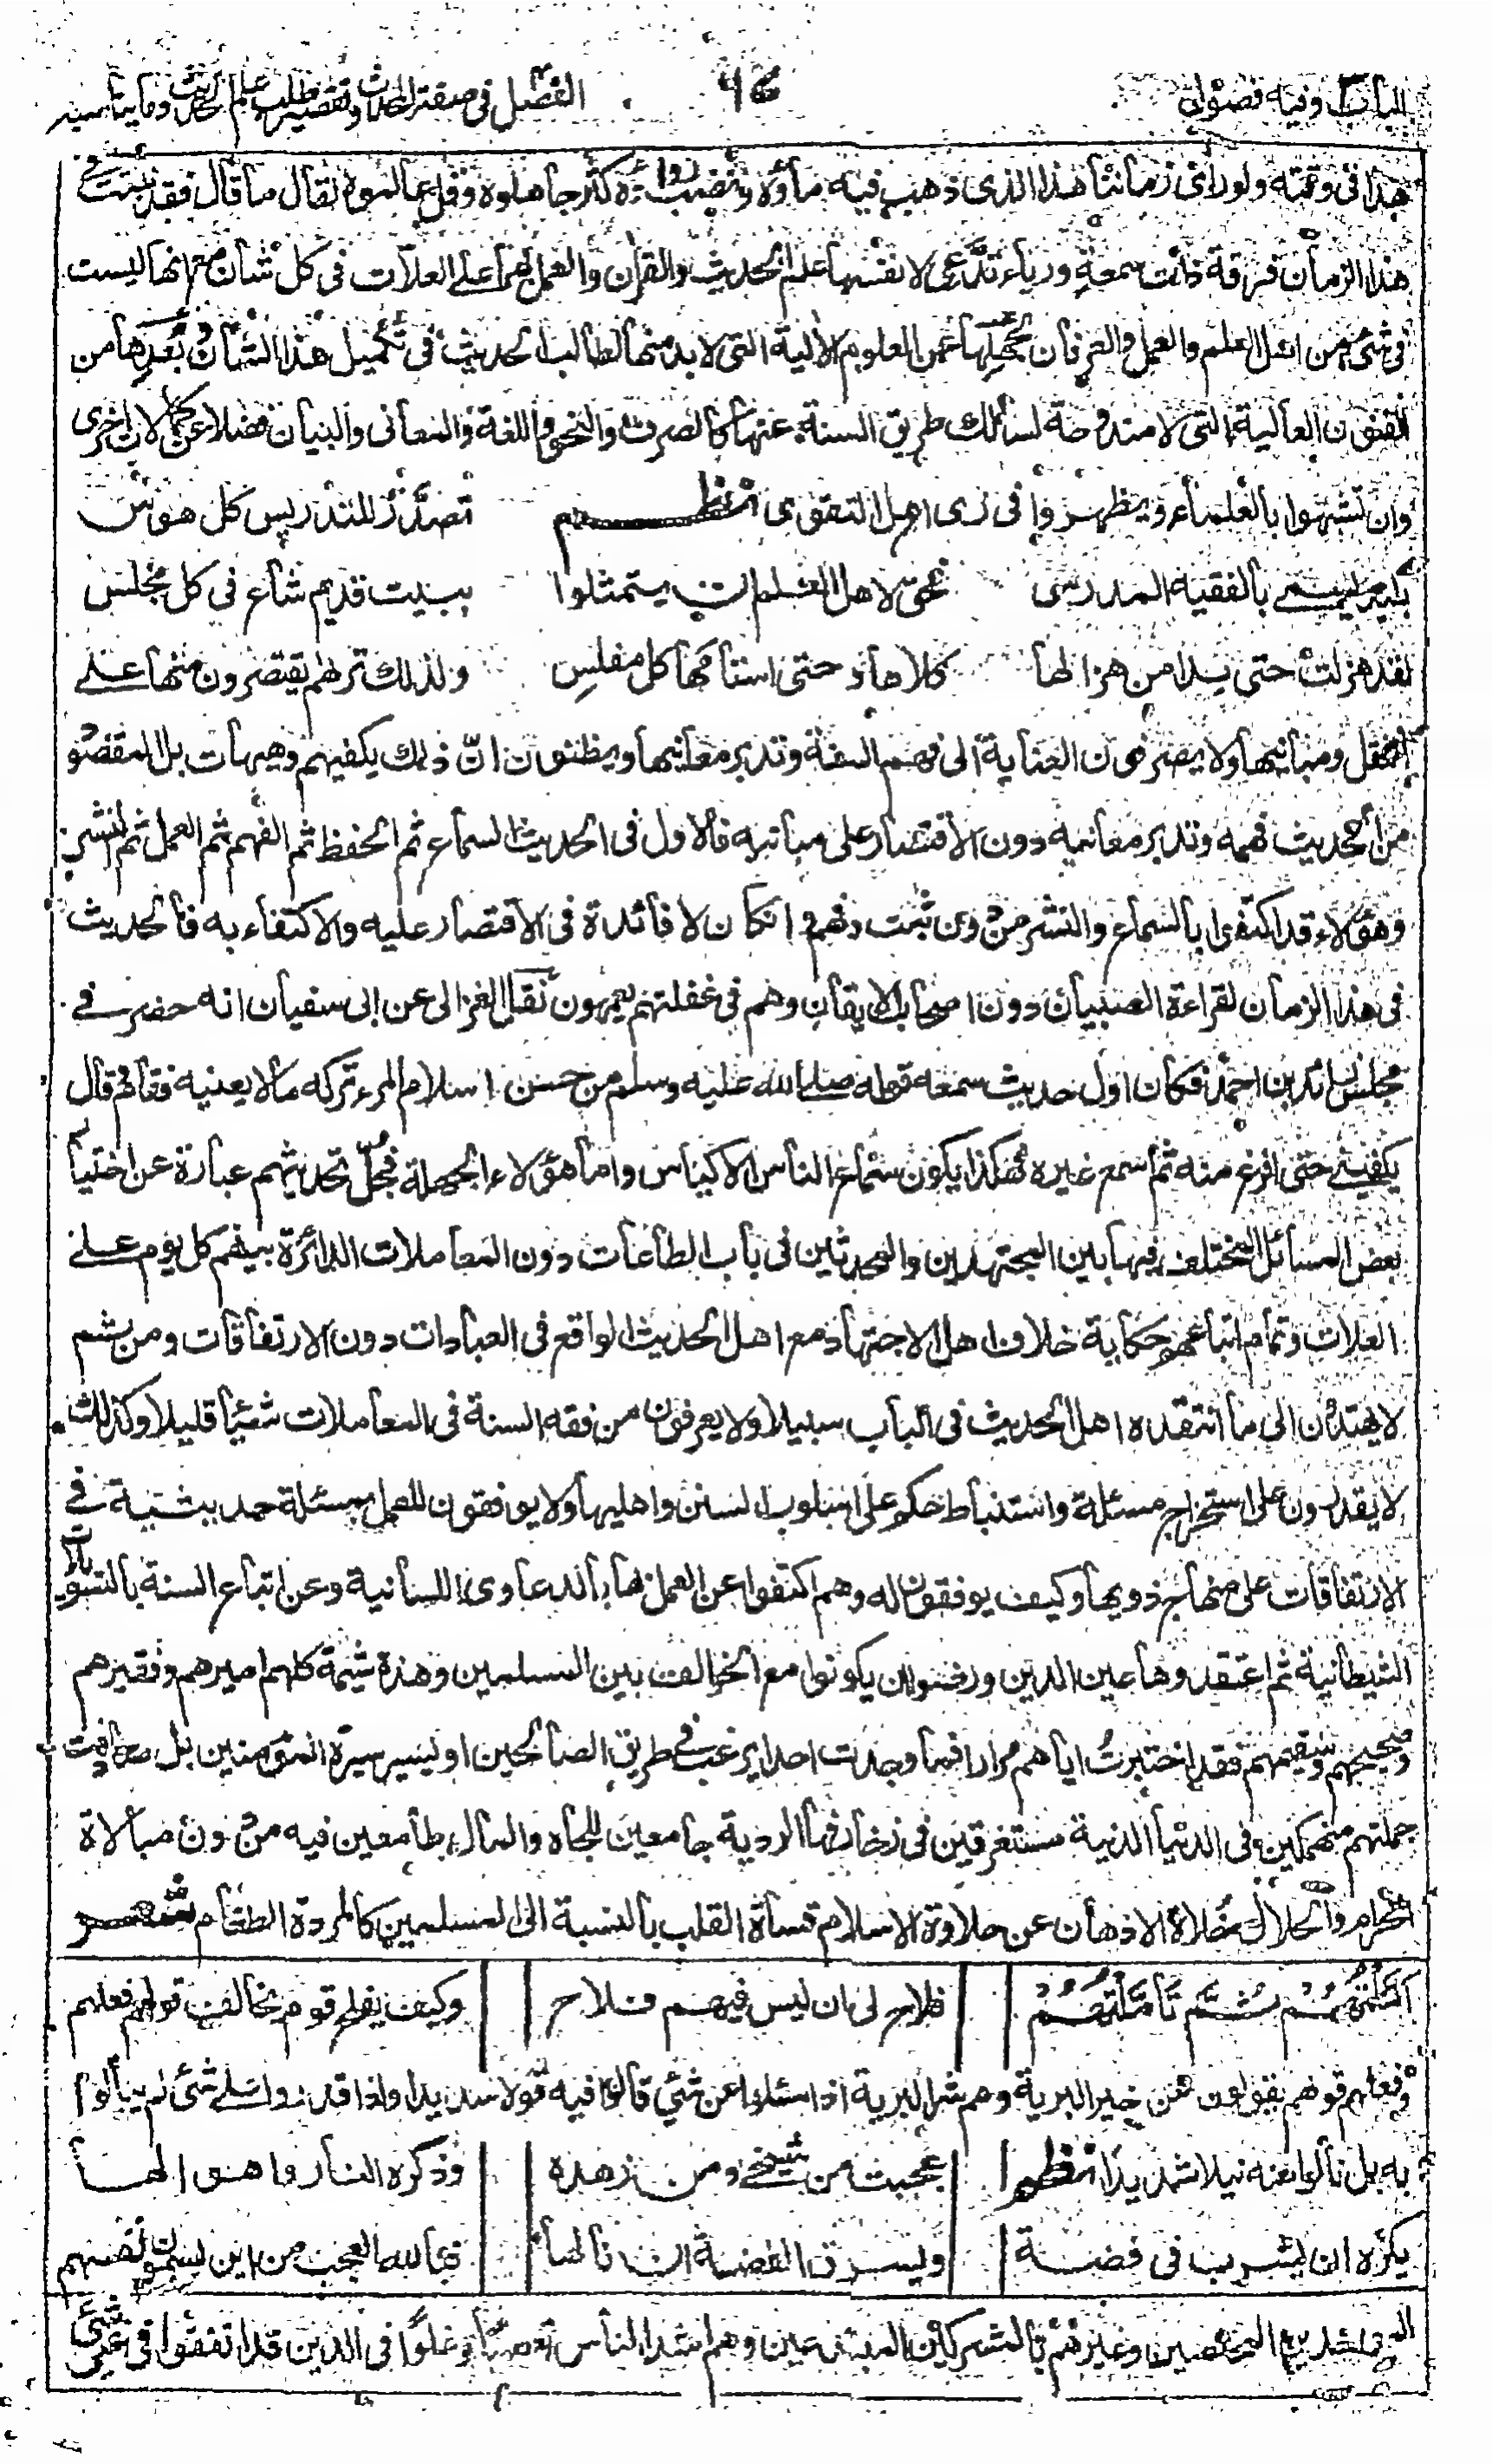 الباب وفيه فصول
الفصل فى صفة المحدث وتقصير طلب علم الحديث وما يناسبه
هذا فى وقته ولو راى زماننا هذا الذى ذهب فيه ماؤه ونضب رواؤه كثر جاهلوه وقل عالموه لقال ما قال فقد نبتت فى
هذا الزمان فرقة ذات سمعة ورياء تدعى لانفسها علم الحديث والقرآن والعمل بهما على العلات فى كل شأن مع انها ليست
فى شئ من اهل العلم والعمل والعرفان لجهلها عن العلوم الآلية التى لا بد منها لطالب الحديث فى تكميل هذا الشأن وبعدها من
الفنون العالية التى لا مندوحة لسالك طريق السنة عنها كالصرف والنحو واللغة والمعانى والبيان فضلا عن كمالات اخرى
وان تشبهوا بالعلماء ويظهروا فى زى اهل التقوى نظم تصدر للتدريس كل مهوس
بليد يسمى بالفقيه المدرس فحق لاهل العلم ان يتمثلوا ببيت قديم شاع فى كل مجلس
لقد هزلت حتى بدا من هزالها كلاها وحتى استامها كل مفلس ولذلك تراهم يقتصرون منها على
النقل ومبانيها ولا يصرفون العناية الى فهم السنة وتدبر معانيها ويظنون ان ذلك يكفيهم وهيهات بل المقصو
من الحديث فهمه وتدبر معانيه دون الاقتصار على مبانيه فالاول فى الحديث السماع ثم الحفظ ثم الفهم ثم العمل ثم النشر
وهؤلاء قد اكتفوا بالسماع والنشر من دون تثبت وفهم وان كان لا فائدة فى الاقتصار عليه والاكتفاء به فالحديث
فى هذا الزمان لقراءة الصبيان دون اصحاب الايقان وهم فى غفلتهم يعمهون نقل الغزالى عن ابى سفيان انه حضر فى
مجلس زائد بن احمد فكان اول حديث سمعه قوله صلى الله عليه وسلم من حسن اسلام المرء تركه ما لا يعنيه فقام وقال
يكفينى حتى افرغ منه ثم اسمع غيره فهكذا يكون سماع الناس الاكياس واما هؤلاء الجهلة فجل تحديثهم عبارة عن اختيا
بعض المسائل المختلف فيها بين المجتهدين والمحدثين فى باب الطاعات دون المعاملات الدائرة بينهم كل يوم على
العلات وتمام اتباعهم حكاية خلاف اهل الاجتهاد مع اهل الحديث الواقع فى العبادات دون الارتفاقات ومن ثم
لا يهتدون الى ما انتقده اهل الحديث فى الباب سبيلا ولا يعرفون من فقه السنة فى المعاملات شيئا قليلا وكذلك
لا يقدرون على استخراج مسئلة واستنباط حكم على اسلوب السنن واهليها ولا يوفقون للعمل بمسئلة حديثية فى
الارتفاقات على منهاج ذويها وكيف يوفقون له وهم اكتفوا عن العمل بها بالدعاوى اللسانية وعن اتباع السنة بالتسويلات
الشيطانية ثم اعتقدوها عين الدين ورضوا بان يكونوا مع الخوالف بين المسلمين وهذه شيمة كلهم اميرهم وفقيرهم
وصحيحهم وسقيمهم فقد اختبرت اياهم مرارا فما وجدت احدا يرغب فى طريق الصالحين او يسير سيرة المؤمنين بل صادفت
جملتهم منهمكين فى الدنيا الدنية مستغرقين فى زخارفها الردية جامعين للجاه والمال طامعين فيه من دون مبالاة
الحرام والحلال خلاة الاذهان عن حلاوة الاسلام قساة القلب بالنسبة الى المسلمين كالمردة الطغام شعر
املتهم ثم تأملتهم فلاح لى ان ليس فيهم فلاح وكيف يفلح قوم يخالف قولهم فعلهم
وفعلهم قولهم يقولون عن خير البرية وهم شر البرية اذا سئلوا عن شئ قالوا فيه قولا سديدا واذا قدروا على شئ لم يبالوا
به بل نالوا منه نيلا شديدا نظم عجبت من شيخى ومن زهده وذكره النار واهوالها
يكره ان يشرب فى فضة ويسرق الفضة ان نالها فيا لله العجب من اين يسمون انفسهم
الموحدين المخلصين وغيرهم بالمشركين المبتدعين وهم اشد الناس تعصبا وغلوا فى الدين قد انفقوا فى غير شئ